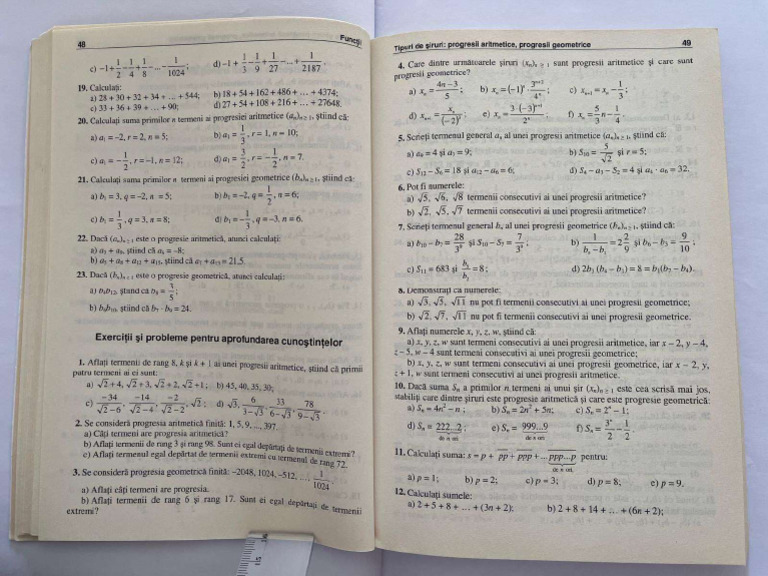 48 Funcții
c) -1+1/2-1/4+1/8-...-1/1024; d) -1+1/3-1/9+1/27-...+1/2187.
19. Calculați:
a) 28 + 30 + 32 + 34 + ... + 544; b) 18 + 54 + 162 + 486 + ... + 4374;
c) 33 + 36 + 39 + ... + 90; d) 27 + 54 + 108 + 216 + ... + 27648.
20. Calculați suma primilor n termeni ai progresiei aritmetice (aₙ)ₙ≥₁, știind că:
a) a₁ = –2, r = 2, n = 5; b) a₁ = 1/3, r = 1, n = 10;
c) a₁ = -1/2, r = –1, n = 12; d) a₁ = 3/2, r = -1/2, n = 7.
21. Calculați suma primilor n termeni ai progresiei geometrice (bₙ)ₙ≥₁, știind că:
a) b₁ = 3, q = –2, n = 5; b) b₁ = –2, q = 1/2, n = 6;
c) b₁ = 1/3, q = 3, n = 8; d) b₁ = -1/3, q = –3, n = 6.
22. Dacă (aₙ)ₙ≥₁ este o progresie aritmetică, atunci calculați:
a) a₁ + a₉, știind că a₅ = –8;
23. Dacă (bₙ)ₙ≥₁ este o progresie geometrică, atunci calculați:
Exerciții și probleme pentru aprofundarea cunoștințelor
1. Aflați termenii de rang 8, k și k + 1 ai unei progresii aritmetice, știind că primii
patru termeni ai ei sunt:
a) √2+4, √2+3, √2+2, √2+1; b) 45, 40, 35, 30;
c) -34/(√2-6), -14/(√2-4), -2/(√2-2), √2; d) √3, 6/(3-√3), 33/(6-√3), 78/(9-√3).
2. Se consideră progresia aritmetică finită: 1, 5, 9, ..., 397.
a) Câți termeni are progresia aritmetică?
b) Aflați termenii de rang 3 și rang 98. Sunt ei egal depărtați de termenii extremi?
c) Aflați termenul egal depărtat de termenii extremi cu termenul de rang 72.
3. Se consideră progresia geometrică finită: –2048, 1024, –512, ..., 1/1024.
a) Aflați câți termeni are progresia.
b) Aflați termenii de rang 6 și rang 17. Sunt ei egal depărtați de termenii
extremi?
Tipuri de șiruri: progresii aritmetice, progresii geometrice 49
4. Care dintre următoarele șiruri (xₙ)ₙ≥₁ sunt progresii aritmetice și care sunt
progresii geometrice?
a) xₙ = (4n-3)/5; c) xₙ₊₁ = xₙ - 1/3;
f) xₙ = 5/3 n - 1/4.
5. Scrieți termenul general aₙ al unei progresii aritmetice (aₙ)ₙ≥₁, știind că:
b) S₁₀ = 5/√2 și r = 5;
6. Pot fi numerele:
a) √5, √6, √8 termenii consecutivi ai unei progresii aritmetice?
b) √2, √5, √7 termenii consecutivi ai unei progresii aritmetice?
7. Scrieți termenul general bₙ al unei progresii geometrice (bₙ)ₙ≥₁, știind că:
8. Demonstrați că numerele:
a) √3, √5, √11 nu pot fi termenii consecutivi ai unei progresii geometrice;
b) √2, √7, √11 nu pot fi termenii consecutivi ai unei progresii geometrice.
9. Aflați numerele x, y, z, w, știind că:
a) x, y, z, w sunt termeni consecutivi ai unei progresii aritmetice, iar x – 2, y – 4,
z – 5, w – 4 sunt termeni consecutivi ai unei progresii geometrice;
b) x, y, z, w sunt termeni consecutivi ai unei progresii geometrice, iar x – 2, y,
z + 1, w sunt termeni consecutivi ai unei progresii aritmetice.
10. Dacă suma Sₙ a primilor n termeni ai unui șir (xₙ)ₙ≥₁ este cea scrisă mai jos,
stabiliți care dintre șiruri este progresie aritmetică și care este progresie geometrică:
a) Sₙ = 4n² – n; b) Sₙ = 2n² + 5n; c) Sₙ = 2ⁿ – 1;
d) Sₙ = 222...2; e) Sₙ = 999...9; f) Sₙ = 3ⁿ/2 - 1/2.
de n ori de n ori
11. Calculați suma: s = p + pp + ppp + ... ppp...p pentru:
de n ori
a) p = 1; b) p = 2; c) p = 3; d) p = 8; e) p = 9.
12. Calculați sumele:
a) 2 + 5 + 8 + ... + (3n + 2); b) 2 + 8 + 14 + ... + (6n + 2);